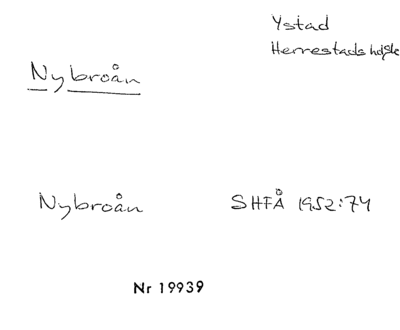 Ystad
Herrestads hdskt
Nybroån
Nybroån SHFÅ 1952:74
Nr 19939